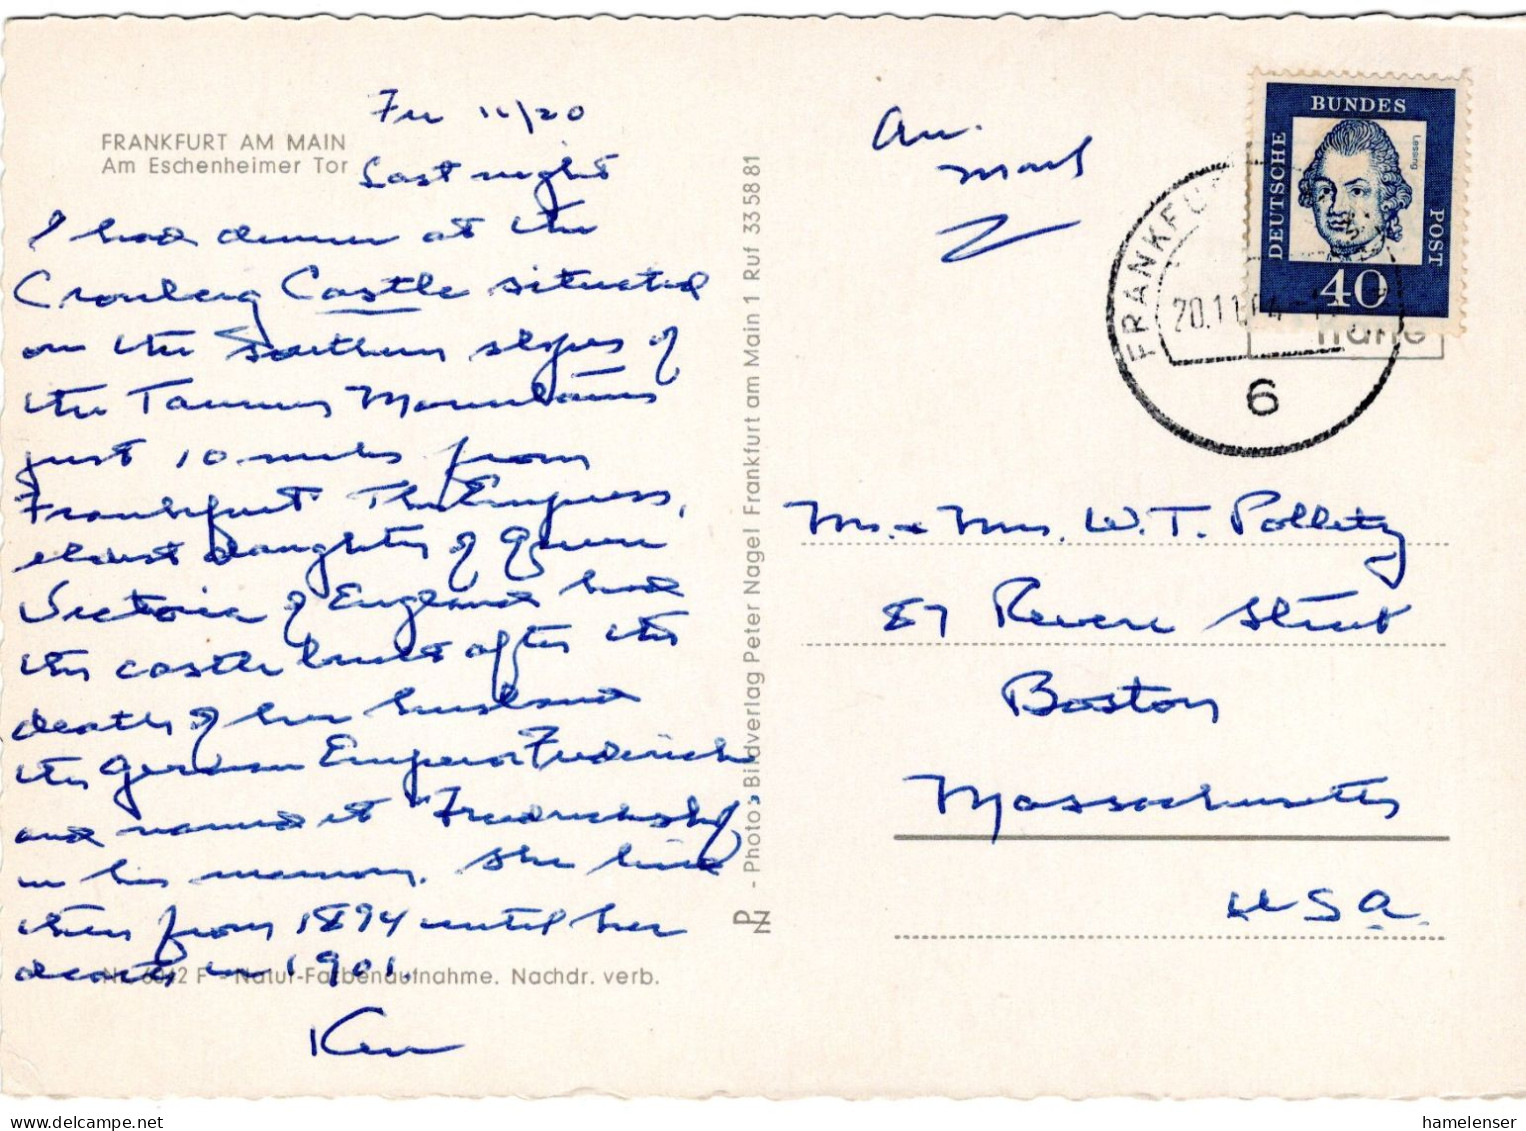 FRANKFURT AM MAIN
Am Eschenheimer Tor
Fri 11/20
Last night
I had dinner at the
Cronberg Castle situated
on the Southern slopes of
the Taunus Mountains
just 10 miles from
Frankfurt The Empress,
eldest daughter of Queen
Victoria of England had
the castle built after the
death of her husband
the German Emperor Frederick
and named it "Friedrichshof
in his memory. She lived
there from 1894 until her
death in 1901.
Ken
Nr. 6042 F - Natur-Farbenaufnahme. Nachdr. verb.
- Photo + Bildverlag Peter Nagel Frankfurt am Main 1 Ruf 33 58 81
PN
Air
Mail
DEUTSCHE
BUNDES
POST
Lessing
40
FRANKFU
20.11.64
6
Mr. & Mrs. W. T. Polletz
87 Revere Street
Boston
Massachusetts
U S A.
www.delcampe.net
hamelenser